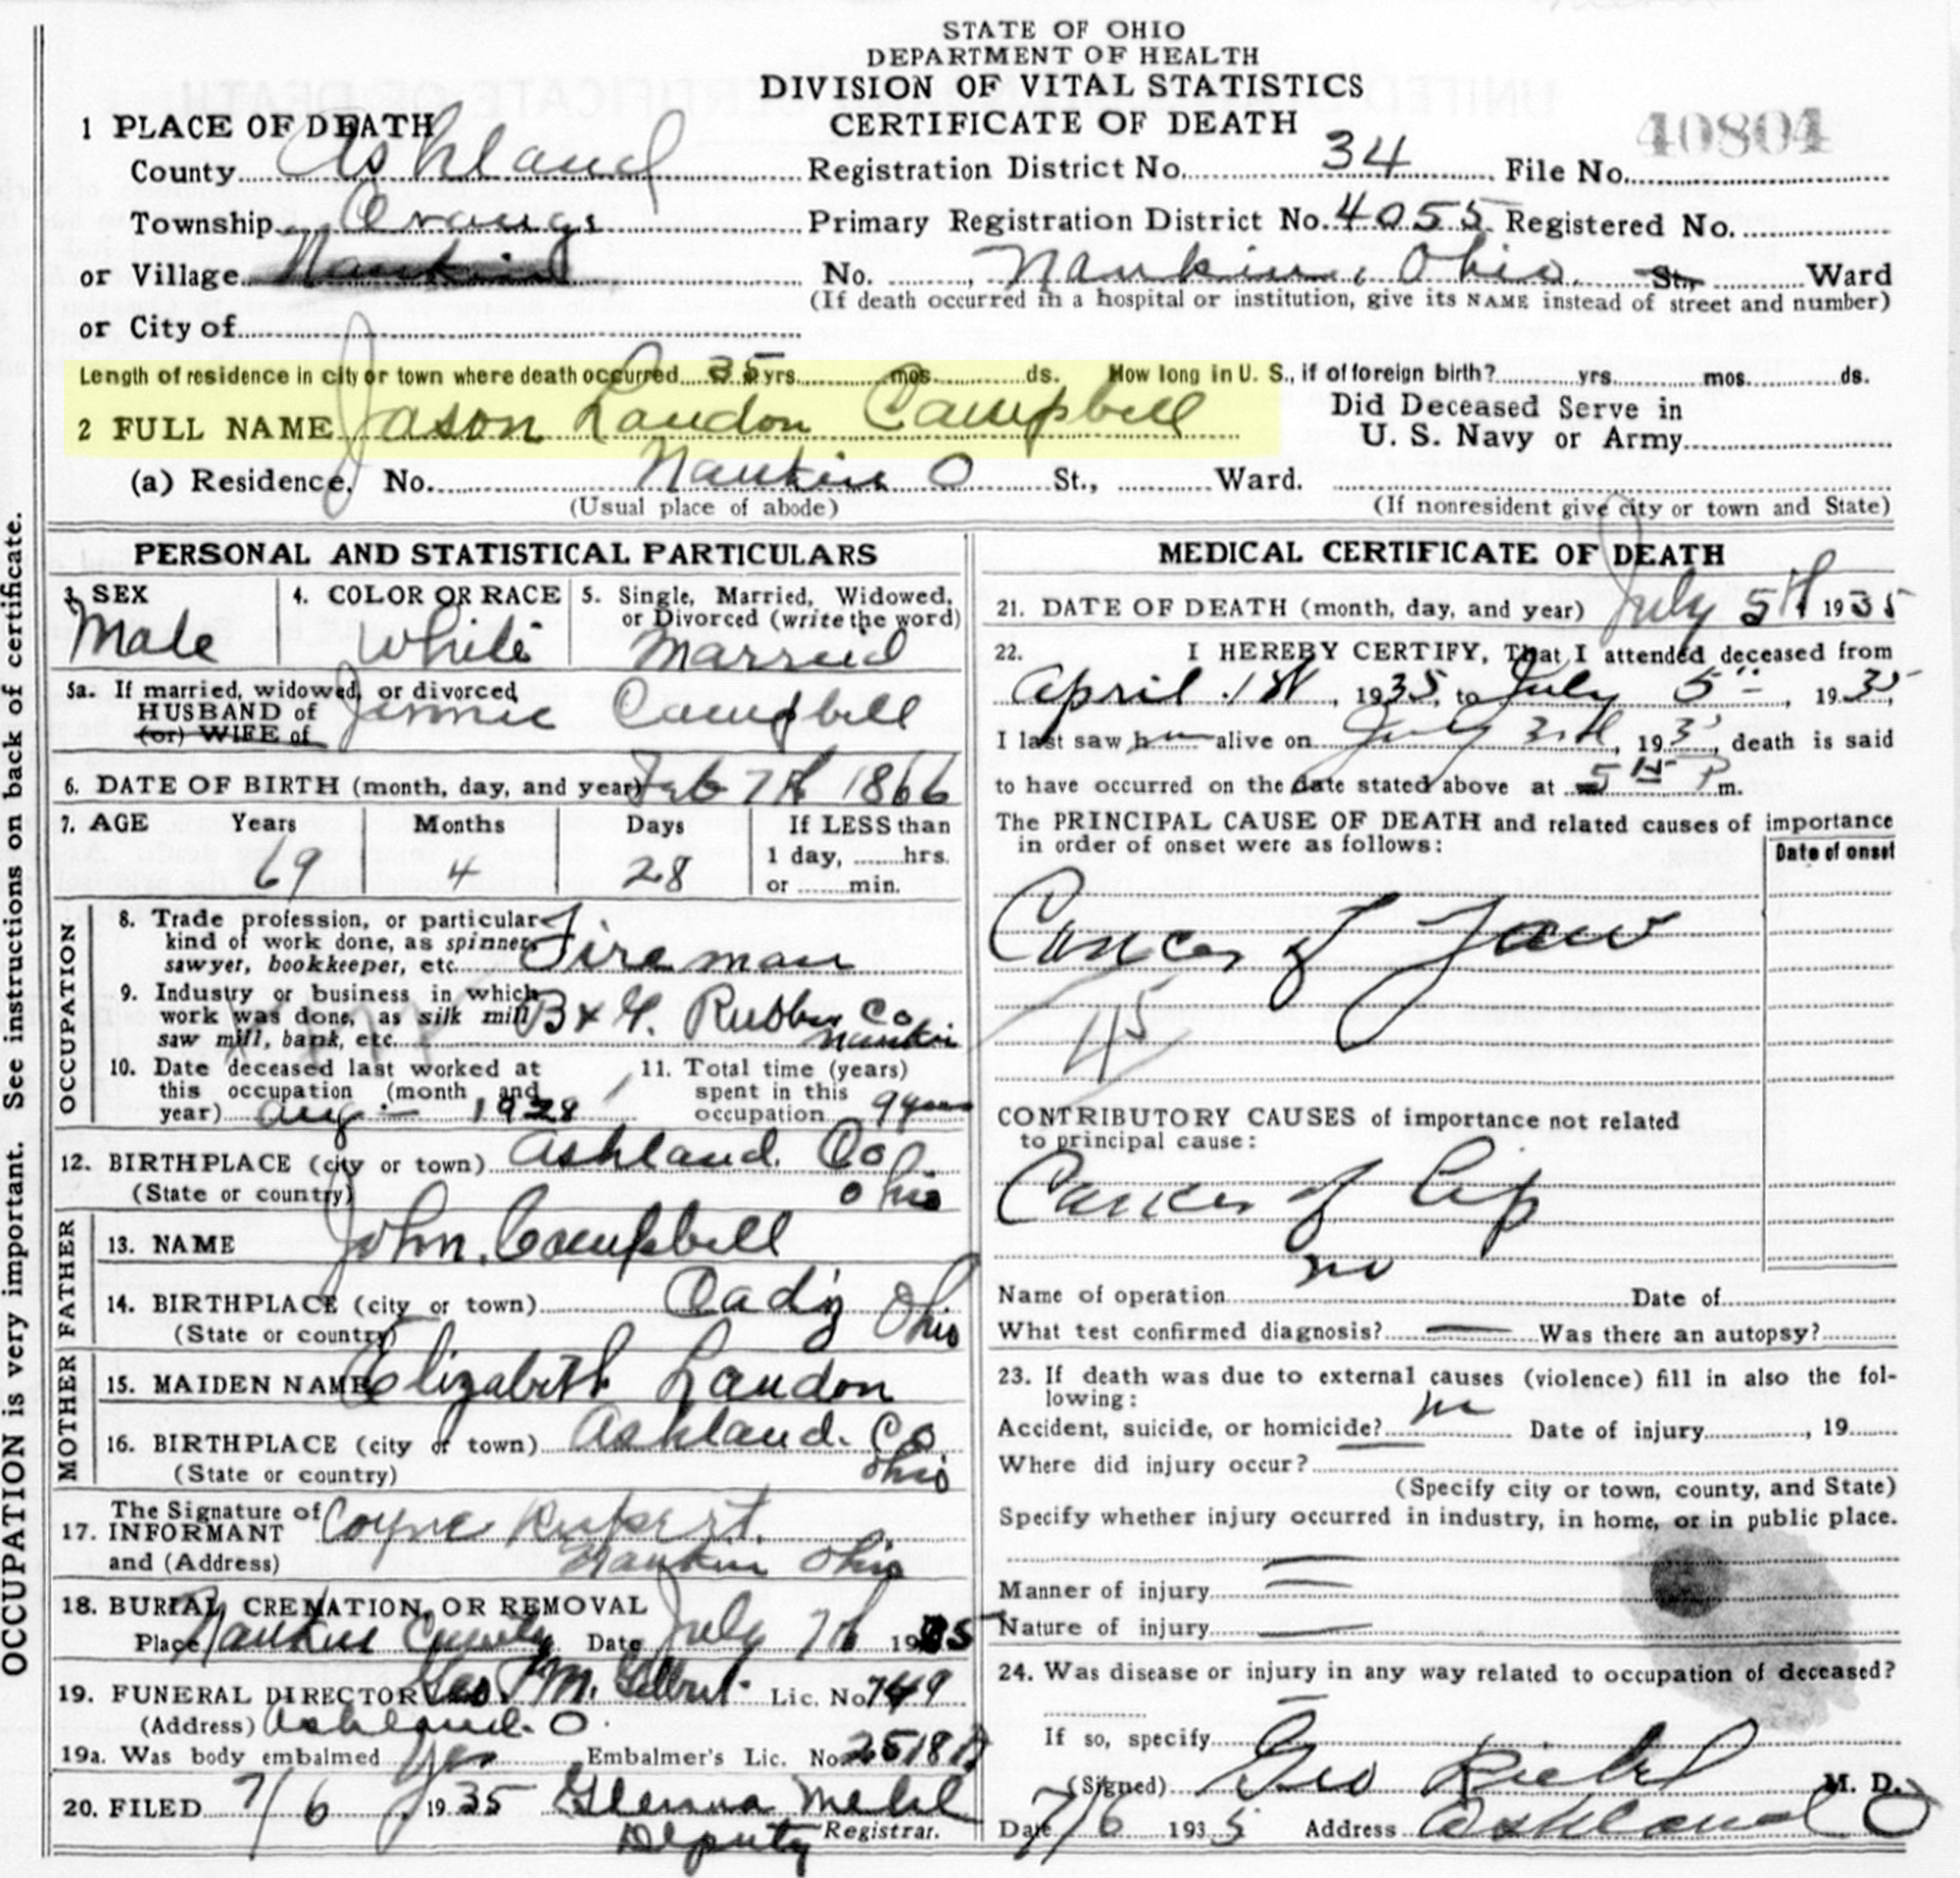 STATE OF OHIO
DEPARTMENT OF HEALTH
DIVISION OF VITAL STATISTICS
CERTIFICATE OF DEATH
40804
1 PLACE OF DEATH
County Ashland Registration District No. 34 File No.
Township Orange Primary Registration District No. 4055 Registered No.
or Village Nankin No. , Nankin, Ohio. St., Ward
(If death occurred in a hospital or institution, give its NAME instead of street and number)
or City of
Length of residence in city or town where death occurred 35 yrs. mos. ds. How long in U. S., if of foreign birth? yrs. mos. ds.
2 FULL NAME Jason Landon Campbell Did Deceased Serve in
U. S. Navy or Army
(a) Residence. No. Nankin O St., Ward.
(Usual place of abode) (If nonresident give city or town and State)
OCCUPATION is very important. See instructions on back of certificate.
PERSONAL AND STATISTICAL PARTICULARS
3. SEX 4. COLOR OR RACE 5. Single, Married, Widowed, or Divorced (write the word)
Male White Married
5a. If married, widowed, or divorced
HUSBAND of Jennie Campbell
(or) WIFE of
6. DATE OF BIRTH (month, day, and year) Feb 7th 1866
7. AGE Years Months Days If LESS than
69 4 28 1 day, hrs.
or min.
OCCUPATION
8. Trade profession, or particular
kind of work done, as spinner,
sawyer, bookkeeper, etc. Fireman
9. Industry or business in which
work was done, as silk mill,
saw mill, bank, etc. B & G. Rubber Co
Nankin
10. Date deceased last worked at
this occupation (month and
year) Aug - 1928
11. Total time (years)
spent in this
occupation 9 years
12. BIRTHPLACE (city or town) Ashland. Co
(State or country) Ohio
FATHER
13. NAME John. Campbell
14. BIRTHPLACE (city or town) Cadiz Ohio
(State or country)
MOTHER
15. MAIDEN NAME Elizabeth Landon
16. BIRTHPLACE (city or town) Ashland. Co
(State or country) Ohio
The Signature of
17. INFORMANT Coyne Rupert.
and (Address) Nankin Ohio
18. BURIAL, CREMATION, OR REMOVAL
Place Nankin Date July 7th 1935
19. FUNERAL DIRECTOR Geo M. Gilbert. Lic. No. 749
(Address) Ashland. O.
19a. Was body embalmed Yes Embalmer's Lic. No. 2518
20. FILED 7/6, 1935 Glenna Mehl
Deputy Registrar.
MEDICAL CERTIFICATE OF DEATH
21. DATE OF DEATH (month, day, and year) July 5th 1935
22. I HEREBY CERTIFY, That I attended deceased from
April 1st, 1935, to July 5", 1935,
I last saw him alive on July 3rd, 193, death is said
to have occurred on the date stated above at 5 P m.
The PRINCIPAL CAUSE OF DEATH and related causes of importance
in order of onset were as follows:
Date of onset
Cancer of Jaw
45
CONTRIBUTORY CAUSES of importance not related
to principal cause:
Cancer of Lip
no
Name of operation Date of
What test confirmed diagnosis? — Was there an autopsy?
23. If death was due to external causes (violence) fill in also the fol-
lowing:
Accident, suicide, or homicide? no Date of injury , 19
Where did injury occur?
(Specify city or town, county, and State)
Specify whether injury occurred in industry, in home, or in public place.
Manner of injury
Nature of injury
24. Was disease or injury in any way related to occupation of deceased?
If so, specify
(Signed) Geo Riebel M. D.
Date 7/6 1935 Address Ashland O